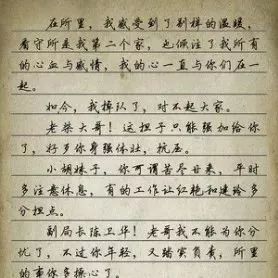 在所里，我感受到了别样的温暖，
看守所是我第二个家，也倾注了我所有
的心血与感情，我的心一直与你们在一
起。
如今，我掉队了，对不起大家。
老柴大哥！这担子只能强加给你
了，好歹你身强体壮，抗压。
小胡妹子，你可谓苦尽甘来，平时
多注意休息，有的工作让红艳和建玲多
分担点。
副局长陈卫华！老哥我不能为你分
忧了，不过你年轻，又踏实负责，所里
的事你多操心了。